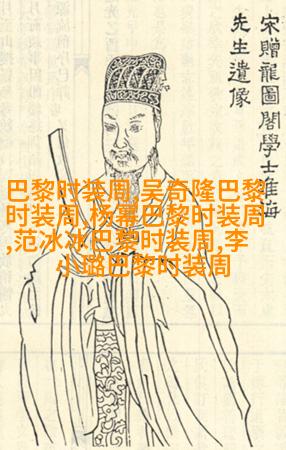 宋贈龍圖閣學士淮海
先生遺像
巴黎时装周,吴奇隆巴黎
时装周,杨幂巴黎时装周
,范冰冰巴黎时装周,李
小璐巴黎时装周